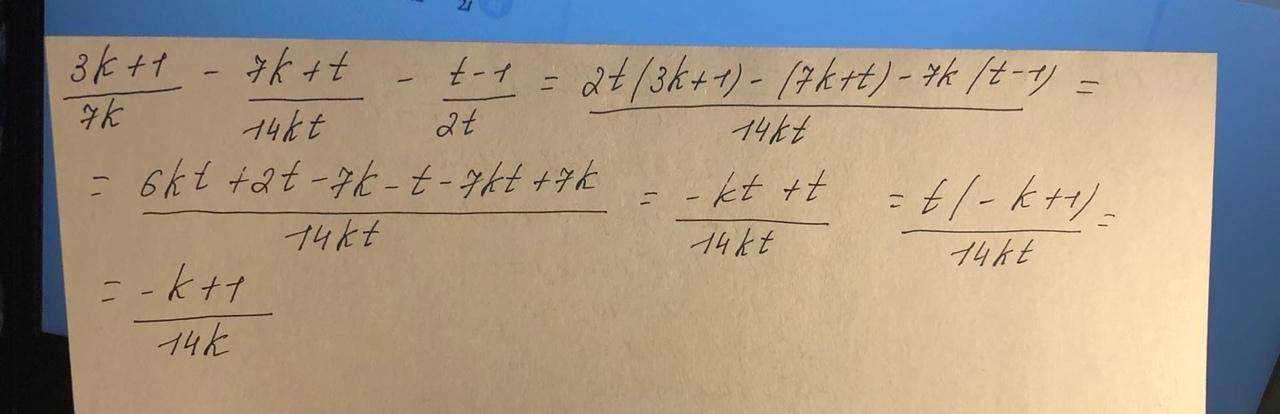 (3k+1)/(7k) - (7k+t)/(14kt) - (t-1)/(2t) = (2t(3k+1) - (7k+t) - 7k(t-1))/(14kt) =
= (6kt+2t-7k-t-7kt+7k)/(14kt) = (-kt+t)/(14kt) = (t(-k+1))/(14kt) =
= (-k+1)/(14k)